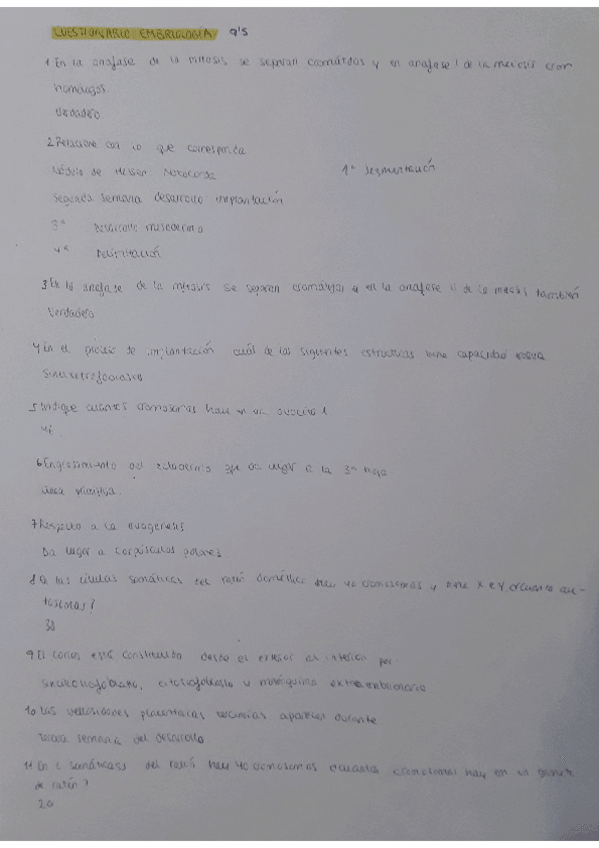 CUESTIONARIO EMBRIOLOGÍA Q'S
1 En la anafase de la mitosis se separan cromátidas y en anafase I de la meiosis crom
homólogos.
Verdadero
2 Relacione con lo que corresponda
Nódulo de Hensen Notocorda 1ª segmentación
Segunda semana desarrollo implantación
3ª desarrollo mesodermo
4ª Delimitación
3 En la anafase de la mitosis se separan cromátidas y en la anafase II de la meiosis también
Verdadero
4 En el proceso de implantación cuál de las siguientes estructuras tiene capacidad
Sincitiotrofoblasto
5 Indique cuantos cromosomas hay en un ovocito 1
46.
6 Engrosamiento del ectodermo que da lugar a la 3ª hoja
Línea primitiva.
7 Respecto a la ovogénesis
Da lugar a corpúsculos polares
8 las células somáticas del ratón doméstico hay 40 cromosomas y tiene X e Y, cuantos au-
tosomas?
38
9 El corion está constituido desde el exterior al interior por
sincitiotrofoblasto, citotrofoblasto y mesénquima extraembrionario
10 Las vellosidades placentarias terciarias aparecen durante
tercera semana del desarrollo
11 En c somáticas del ratón hay 40 cromosomas cuantos cromosomas hay en un gamet
de ratón?
20